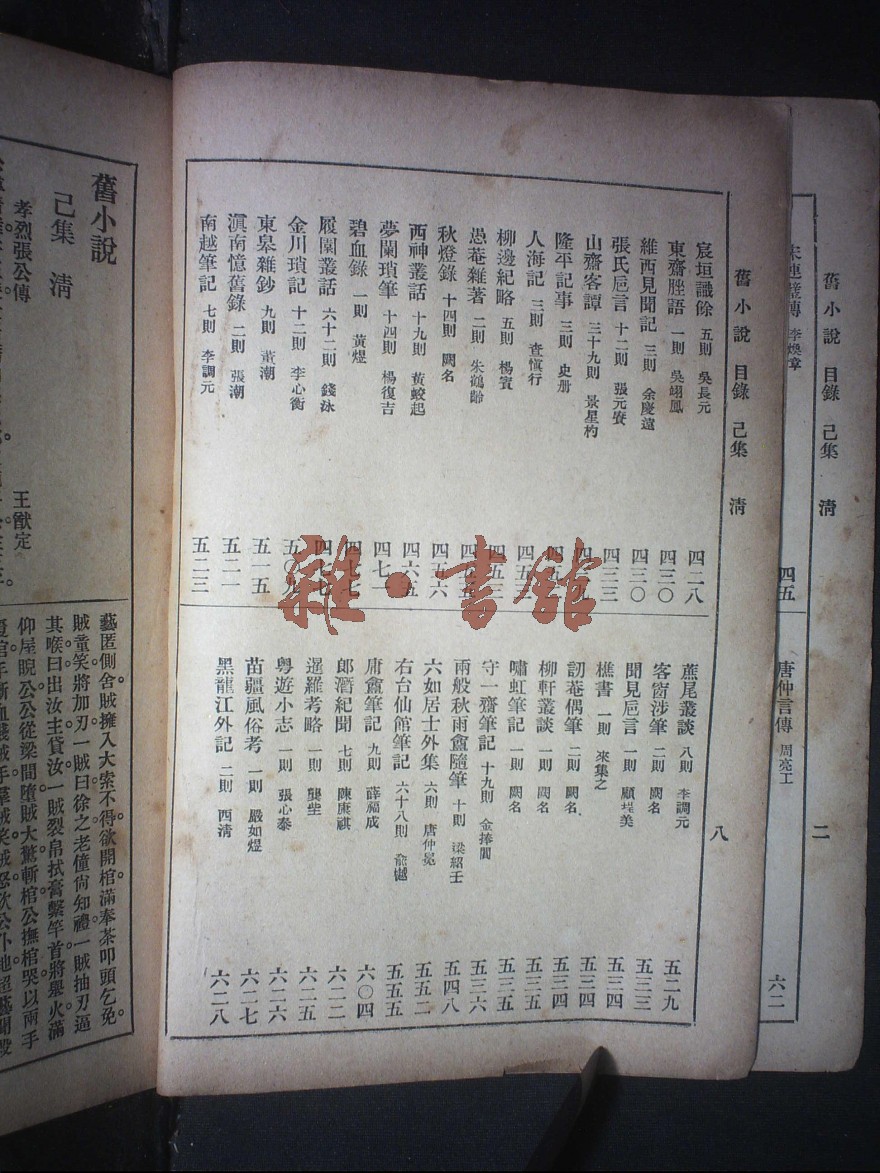 舊小說 目錄 己集 清
二
李煥章
四五
唐仲言傳 周亮工
六二
舊小說 目錄 己集 清
八
宸垣識餘 五則 吳長元 四二八
東齋脞語 一則 吳翊鳳 四三〇
維西見聞記 三則 余慶遠 四三〇
張氏巵言 十二則 張元賡 四三三
山齋客譚 三十九則 景星杓
隆平記事 三則 史册
人海記 三則 查慎行
柳邊紀略 五則 楊賓
愚菴雜著 二則 朱鶴齡
秋燈錄 十四則 闕名 四五六
西神叢話 十九則 黃蛟起 四六五
夢闌瑣筆 十四則 楊復吉
碧血錄 一則 黃煜
履園叢話 六十二則 錢泳
金川瑣記 十二則 李心衡 五〇九
東皋雜鈔 九則 董潮 五一五
滇南憶舊錄 二則 張潮 五二一
南越筆記 七則 李調元 五二三
蔗尾叢談 八則 李調元 五二九
客窗涉筆 二則 闕名 五三三
聞見巵言 一則 顧珵美 五三四
樵書 一則 來集之 五三四
訒菴偶筆 二則 闕名 五三四
柳軒叢談 一則 闕名 五三五
嘯虹筆記 一則 闕名 五三五
守一齋筆記 十九則 金捧閶 五三六
兩般秋雨盦隨筆 十則 梁紹壬 五四八
六如居士外集 六則 唐仲冕 五五二
右台仙館筆記 六十八則 俞樾 五五五
庸盦筆記 九則 薛福成 六〇四
郎潛紀聞 七則 陳康祺 六二二
暹羅考略 一則 龔柴 六二五
粵遊小志 一則 張心泰 六二六
苗疆風俗考 一則 嚴如煜 六二七
黑龍江外記 二則 西清 六二八
雜·書館
舊小說
己集 清
孝烈張公傳
王猷定
藝匿側舍賊擁入大索不得欲開棺滿奉茶叩頭乞免。
賊童笑將加刃一賊曰徐之老僮尙知禮一賊抽刃逼
其喉曰出汝主貸汝一賊裂帛拭膏繫竿首將舉火滿
仰屋睨公公從梁間墮賊大驚斬棺公撫棺哭以兩手